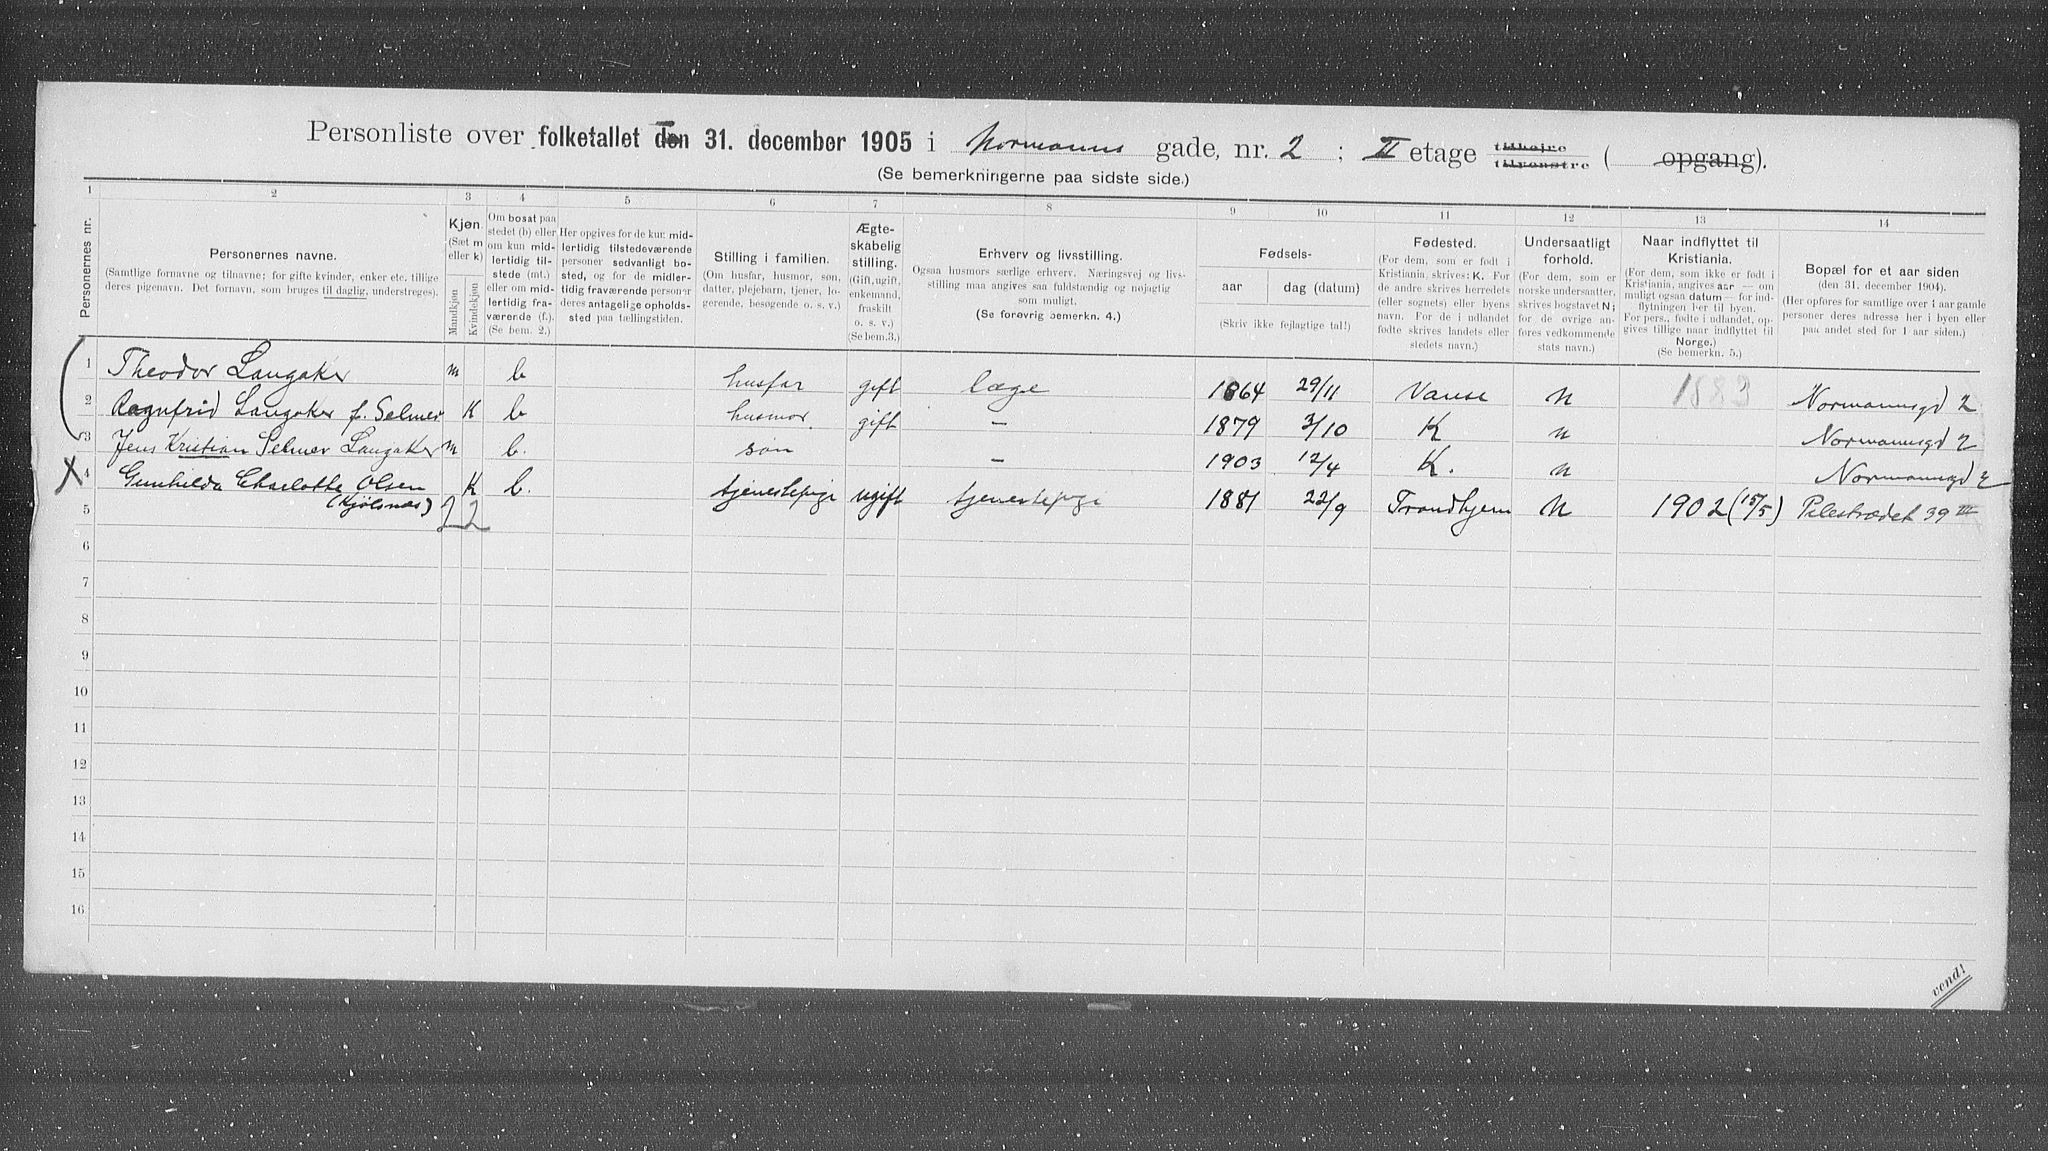 Personliste over folketallet den 31. december 1905 i Normanns gade, nr. 2 ; II etage tilhøjre tilvenstre ( opgang).
(Se bemerkningerne paa sidste side.)
1 2 3 4 5 6 7 8 9 10 11 12 13 14
Personernes nr.
Personernes navne.
(Samtlige fornavne og tilnavne; for gifte kvinder, enker etc. tillige
deres pigenavn. Det fornavn, som bruges til daglig, understreges).
Kjøn.
(Sæt m
eller k)
Mandkjøn
Kvindekjøn
Om bosat paa
stedet (b) eller
om kun mid-
lertidig til-
stede (mt.)
eller om mid-
lertidig fra-
værende (f.).
(Se bem. 2.)
Her opgives for de kun mid-
lertidig tilstedeværende
personer sedvanligt bo-
sted, og for de midler-
tidig fraværende personer
deres antagelige opholds-
sted paa tællingstiden.
Stilling i familien.
(Om husfar, husmor, søn,
datter, plejebarn, tjener, lo-
gerende, besøgende o. s. v.)
Ægte-
skabelig
stilling.
(Gift, ugift,
enkemand,
fraskilt
o. s. v.)
(Se bem.3.)
Erhverv og livsstilling.
Ogsaa husmors særlige erhverv. Næringsvej og livs-
stilling maa angives saa fuldstændig og nøjagtig
som muligt.
(Se forøvrig bemerkn. 4.)
Fødsels-
aar dag (datum)
(Skriv ikke fejlagtige tal!)
Fødested.
(For dem, som er født i
Kristiania, skrives: K. For
de andre skrives herredets
(eller sognets) eller byens
navn. For de i udlandet
fødte skrives landets eller
stedets navn.)
Undersaatligt
forhold.
(For dem, som er
norske undersaatter,
skrives bogstavet N;
for de øvrige an-
føres vedkommende
stats navn.)
Naar indflyttet til
Kristiania.
(For dem, som ikke er født i
Kristiania, angives aar — om
muligt ogsaa datum — for ind-
flytningen her til byen.
For pers., fødte i udlandet, op-
gives tillige naar indflyttet til
Norge.)
(Se bemerkn. 5.)
Bopæl for et aar siden
(den 31. december 1904).
(Her opføres for samtlige over 1 aar gamle
personer deres adresse her i byen eller
paa andet sted for 1 aar siden.)
1 Theodor Langaker m b husfar gift læge 1864 29/11 Vanse N 1883 Normannsgd 2
2 Ragnfrid Langaker f. Selmer K b husmor gift — 1879 3/10 K N Normannsgd 2
3 Jens Kristian Selmer Langaker m b. søn — 1903 12/4 K. N Normannsgd 2
X 4 Gunhilda Charlotte Olsen K b. tjenestepige ugift tjenestepige 1881 22/9 Trondhjem N 1902 (15/5) Pilestrædet 39 III
5 (Kjølsnæs) 2 2
6
7
8
9
10
11
12
13
14
15
16
vend!